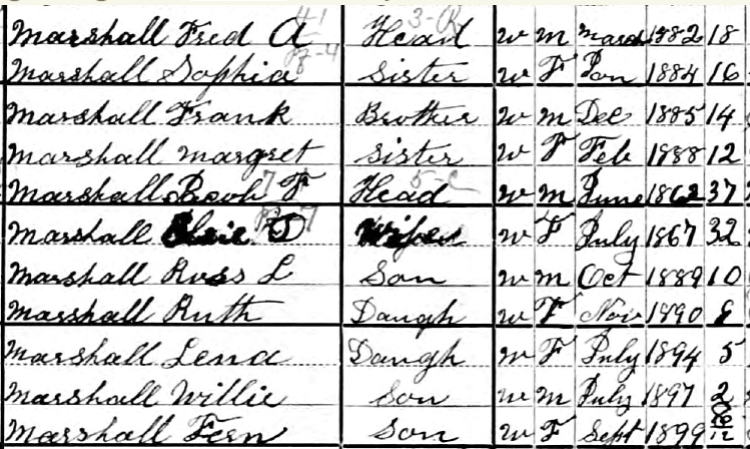 Marshall Fred A Head W M March 1882 18
Marshall Sophia Sister W F Jan 1884 16
Marshall Frank Brother W M Dec 1885 14
Marshall Margret Sister W F Feb 1888 12
Marshall F Head W M June 1862 37
Marshall Elsie D Wife W F July 1867 32
Marshall Ross L Son W M Oct 1889 10
Marshall Ruth Daugh W F Nov 1890 9
Marshall Lena Daugh W F July 1894 5
Marshall Willie Son W M July 1897 2
Marshall Fern Son W F Sept 1899 8/12